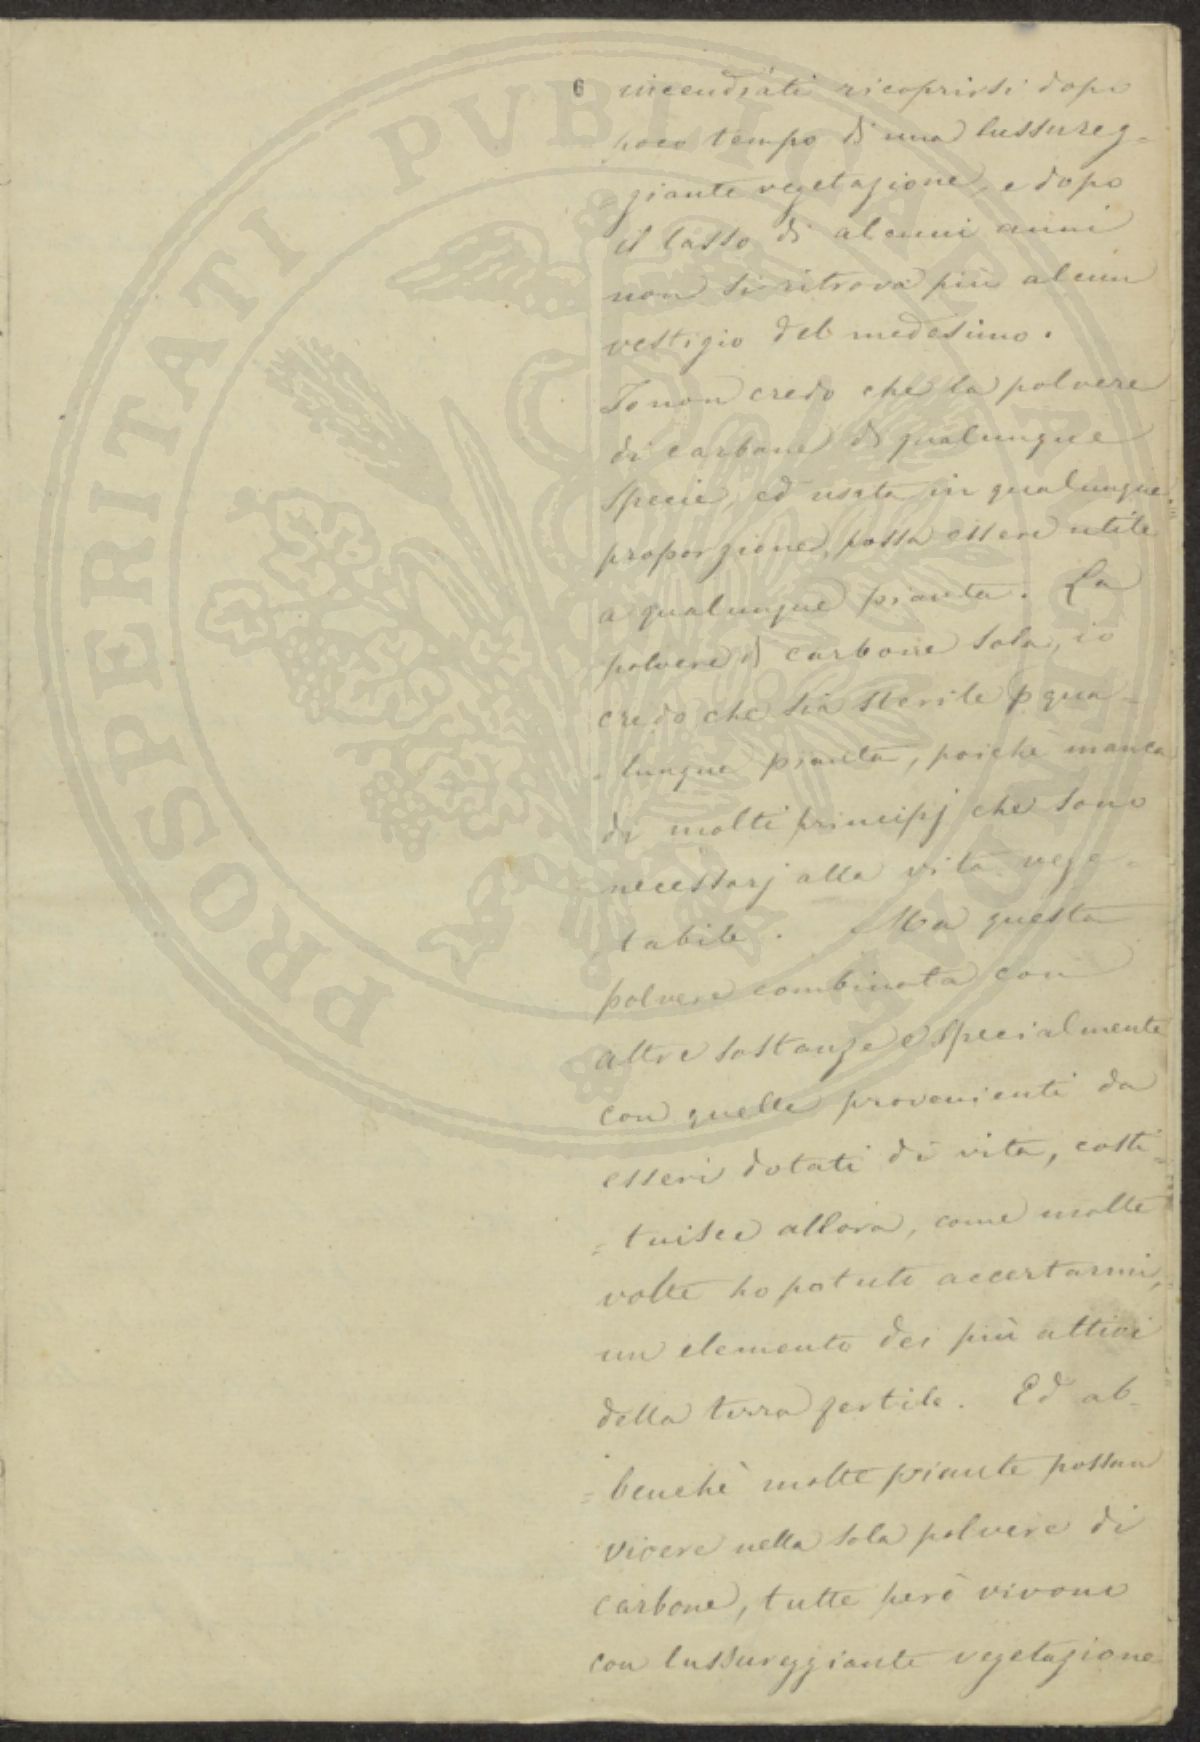 6 incendiati ricoprirsi dopo
poco tempo di una lussureg-
=giante vegetazione, e dopo
il lasso di alcuni anni
non si ritrova più alcun
vestigio del medesimo.
Io non credo che la polvere
di carbone di qualunque
specie, ed usata in qualunque
proporzione, possa essere utile
a qualunque pianta. La
polvere di carbone sola, io
credo che sia sterile p qua-
-lunque pianta, poichè manca
di molti principj che sono
necessarj alla vita vege=
tabile. Ma questa
polvere combinata con
altre sostanze e specialmente
con quelle provenienti da
esseri dotati di vita, costi=
=tuisce allora, come molte
volte ho potuto accertarmi,
un elemento dei più attivi
della terra fertile. Ed ab-
=benchè molte piante possan
vivere nella sola polvere di
carbone, tutte però vivono
con lussureggiante vegetazione
PROSPERITATI PVBLICAE AVGENDAE